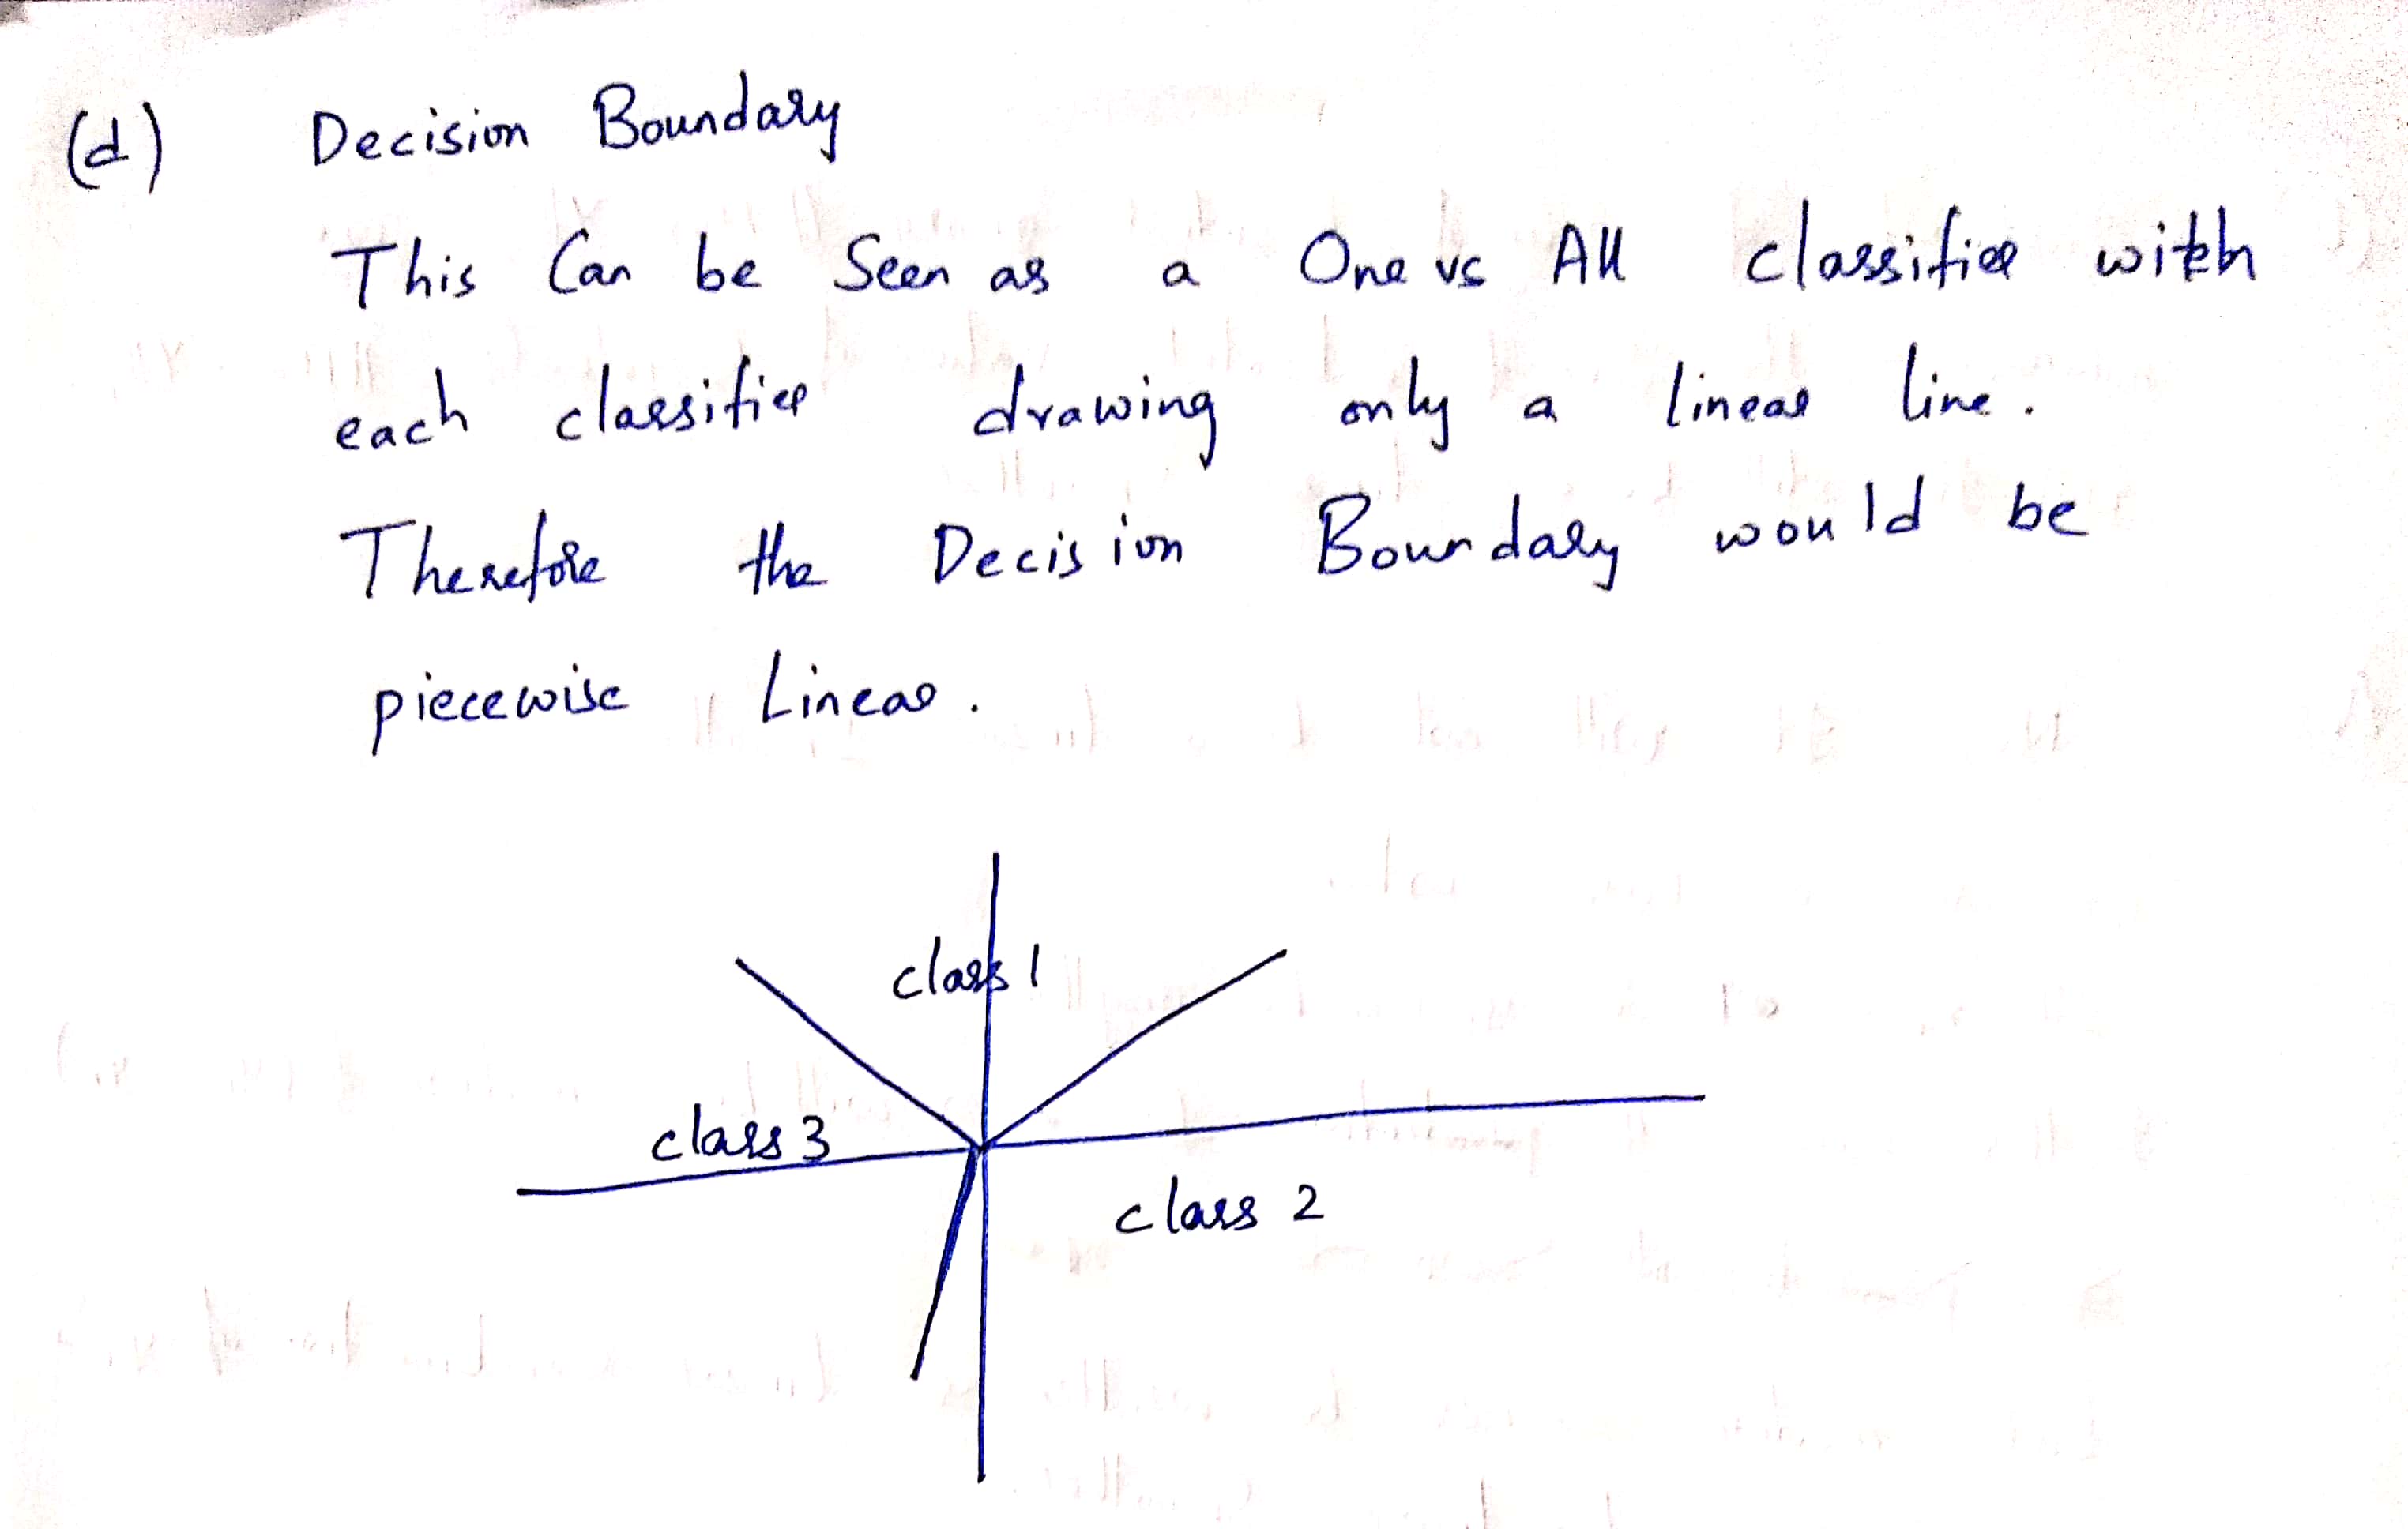 (d) Decision Boundary
This Can be Seen as a One vs All classifier with
each classifier drawing only a linear line.
Therefore the Decision Boundary would be
piecewise Linear.
class 1
class 3
class 2